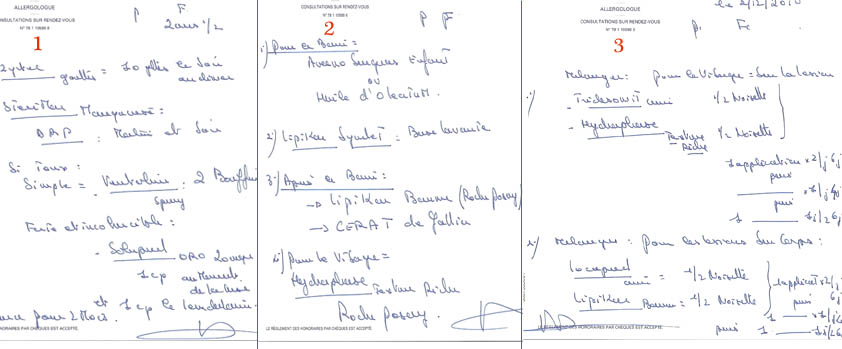 ALLERGOLOGUE
CONSULTATIONS SUR RENDEZ-VOUS
N° 78 1 10698 8
1
P F
2 ans 1/2
Zyrtec
gouttes = 10 gttes le soir
au dîner
Stérimar Manganèse :
DRP : Matin et Soir
Si Toux :
Simple = Ventoline : 2 Bouffées
Spray
Forte et incoercible :
- Solupred ORO 20mg
1 cp au moment
de la toux
et 1 cp le lendemain.
pour 2 Mois.
HONORAIRES PAR CHEQUES EST ACCEPTÉ.
CONSULTATIONS SUR RENDEZ-VOUS
N° 78 1 10698 8
2
P F
1) Pour le Bain :
Enfant
ou
Huile d'
2) Lipikar Syndet = Base lavante
3) Après le Bain :
→ Lipikar Baume (Roche posay)
→ CERAT de Galien
4) Pour le Visage =
Hydraphase Texture Riche
Roche posay.
LE RÈGLEMENT DES HONORAIRES PAR CHÈQUES EST ACCEPTÉ.
ALLERGOLOGUE
CONSULTATIONS SUR RENDEZ-VOUS
N° 78 1 10698 8
3
P. F
1) Melanger : pour le Visage = Sur la lesion
- Tridesonit 1/2 Noisette
- Hydraphase Texture 1/2 Noisette
Riche
1 application x2/j 6j
puis
x1/j 6j
puis
1
2) Melanger : pour les lesions Sur Corps :
Locapred = 1/2 Noisette
Lipikar Baume = 1/2 Noisette
1 applicat x2/j
6j
puis
1 x1/j
puis 1
HONORAIRES PAR CHEQUES EST ACCEPTÉ.